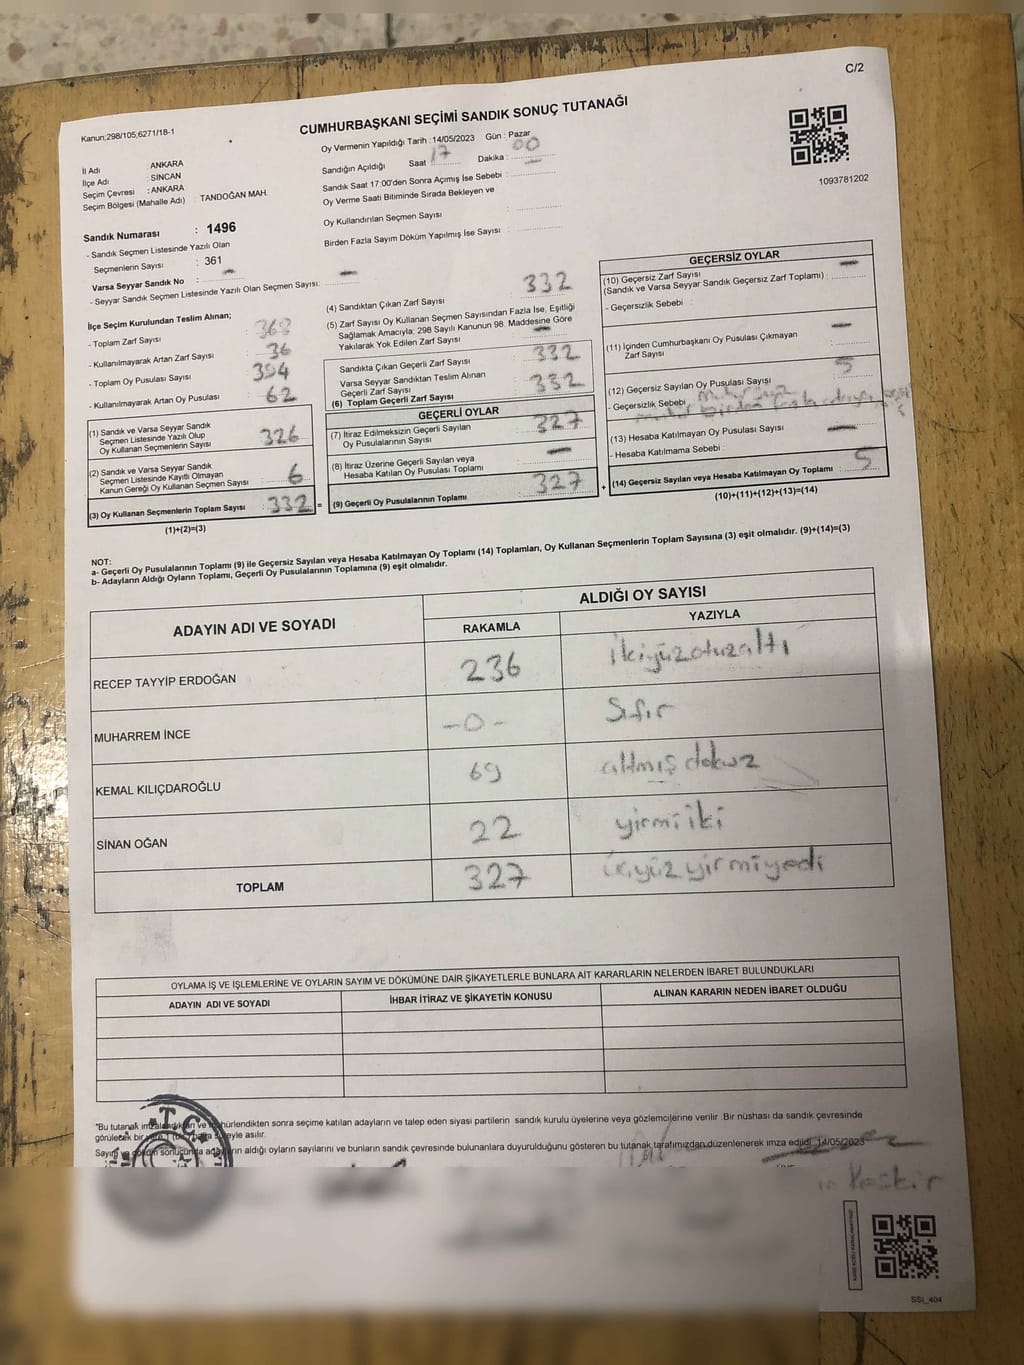 C/2
Kanun;298/105;6271/18-1
CUMHURBAŞKANI SEÇİMİ SANDIK SONUÇ TUTANAĞI
1093781202
İl Adı : ANKARA
İlçe Adı : SİNCAN
Seçim Çevresi : ANKARA
Seçim Bölgesi (Mahalle Adı) TANDOĞAN MAH.
Sandık Numarası : 1496
- Sandık Seçmen Listesinde Yazılı Olan
Seçmenlerin Sayısı : 361
Varsa Seyyar Sandık No : —
- Seyyar Sandık Seçmen Listesinde Yazılı Olan Seçmen Sayısı: —
Oy Vermenin Yapıldığı Tarih : 14/05/2023 Gün : Pazar
Sandığın Açıldığı Saat 17 Dakika : 00
Sandık Saat 17:00'den Sonra Açımış İse Sebebi : —
Oy Verme Saati Bitiminde Sırada Bekleyen ve
Oy Kullandırılan Seçmen Sayısı :
Birden Fazla Sayım Döküm Yapılmış İse Sayısı :
İlçe Seçim Kurulundan Teslim Alınan;
- Toplam Zarf Sayısı : 368
- Kullanılmayarak Artan Zarf Sayısı : 36
- Toplam Oy Pusulası Sayısı : 394
- Kullanılmayarak Artan Oy Pusulası : 62
(1) Sandık ve Varsa Seyyar Sandık
Seçmen Listesinde Yazılı Olup
Oy Kullanan Seçmenlerin Sayısı : 326
(2) Sandık ve Varsa Seyyar Sandık
Seçmen Listesinde Kayıtlı Olmayan
Kanun Gereği Oy Kullanan Seçmen Sayısı : 6
(3) Oy Kullanan Seçmenlerin Toplam Sayısı : 332 =
(1)+(2)=(3)
(4) Sandıktan Çıkan Zarf Sayısı : 332
(5) Zarf Sayısı Oy Kullanan Seçmen Sayısından Fazla İse, Eşitliği
Sağlamak Amacıyla; 298 Sayılı Kanunun 98. Maddesine Göre
Yakılarak Yok Edilen Zarf Sayısı : —
Sandıkta Çıkan Geçerli Zarf Sayısı : 332
Varsa Seyyar Sandıktan Teslim Alınan
Geçerli Zarf Sayısı :
(6) Toplam Geçerli Zarf Sayısı : 332
GEÇERLİ OYLAR
(7) İtiraz Edilmeksizin Geçerli Sayılan
Oy Pusulalarının Sayısı : 327
(8) İtiraz Üzerine Geçerli Sayılan veya
Hesaba Katılan Oy Pusulası Toplamı : —
(9) Geçerli Oy Pusulalarının Toplamı : 327 +
GEÇERSİZ OYLAR
(10) Geçersiz Zarf Sayısı
(Sandık ve Varsa Seyyar Sandık Geçersiz Zarf Toplamı) : —
- Geçersizlik Sebebi :
(11) İçinden Cumhurbaşkanı Oy Pusulası Çıkmayan
Zarf Sayısı : —
(12) Geçersiz Sayılan Oy Pusulası Sayısı : 5
- Geçersizlik Sebebi :
birden fazla
(13) Hesaba Katılmayan Oy Pusulası Sayısı : —
- Hesaba Katılmama Sebebi :
(14) Geçersiz Sayılan veya Hesaba Katılmayan Oy Toplamı : 5
(10)+(11)+(12)+(13)=(14)
NOT:
a- Geçerli Oy Pusulalarının Toplamı (9) ile Geçersiz Sayılan veya Hesaba Katılmayan Oy Toplamı (14) Toplamları, Oy Kullanan Seçmenlerin Toplam Sayısına (3) eşit olmalıdır. (9)+(14)=(3)
b- Adayların Aldığı Oyların Toplamı, Geçerli Oy Pusulalarının Toplamına (9) eşit olmalıdır.
ADAYIN ADI VE SOYADI ALDIĞI OY SAYISI
RAKAMLA YAZIYLA
RECEP TAYYİP ERDOĞAN 236 ikiyüzotuzaltı
MUHARREM İNCE -0- Sıfır
KEMAL KILIÇDAROĞLU 69 altmış dokuz
SİNAN OĞAN 22 yirmi iki
TOPLAM 327 üçyüz yirmiyedi
OYLAMA İŞ VE İŞLEMLERİNE VE OYLARIN SAYIM VE DÖKÜMÜNE DAİR ŞİKAYETLERLE BUNLARA AİT KARARLARIN NELERDEN İBARET BULUNDUKLARI
ADAYIN ADI VE SOYADI İHBAR İTİRAZ VE ŞİKAYETİN KONUSU ALINAN KARARIN NEDEN İBARET OLDUĞU
"Bu tutanak imzalandıktan ve mühürlendikten sonra seçime katılan adayların ve talep eden siyasi partilerin sandık kurulu üyelerine veya gözlemcilerine verilir .Bir nüshası da sandık çevresinde
görülecek bir yere süreyle asılır.
Sayım ve döküm sonucunda adayların aldığı oyların sayılarını ve bunların sandık çevresinde bulunanlara duyurulduğunu gösteren bu tutanak tarafımızdan düzenlenerek imza edildi. 14/05/2023
T.C.
SSİ_404